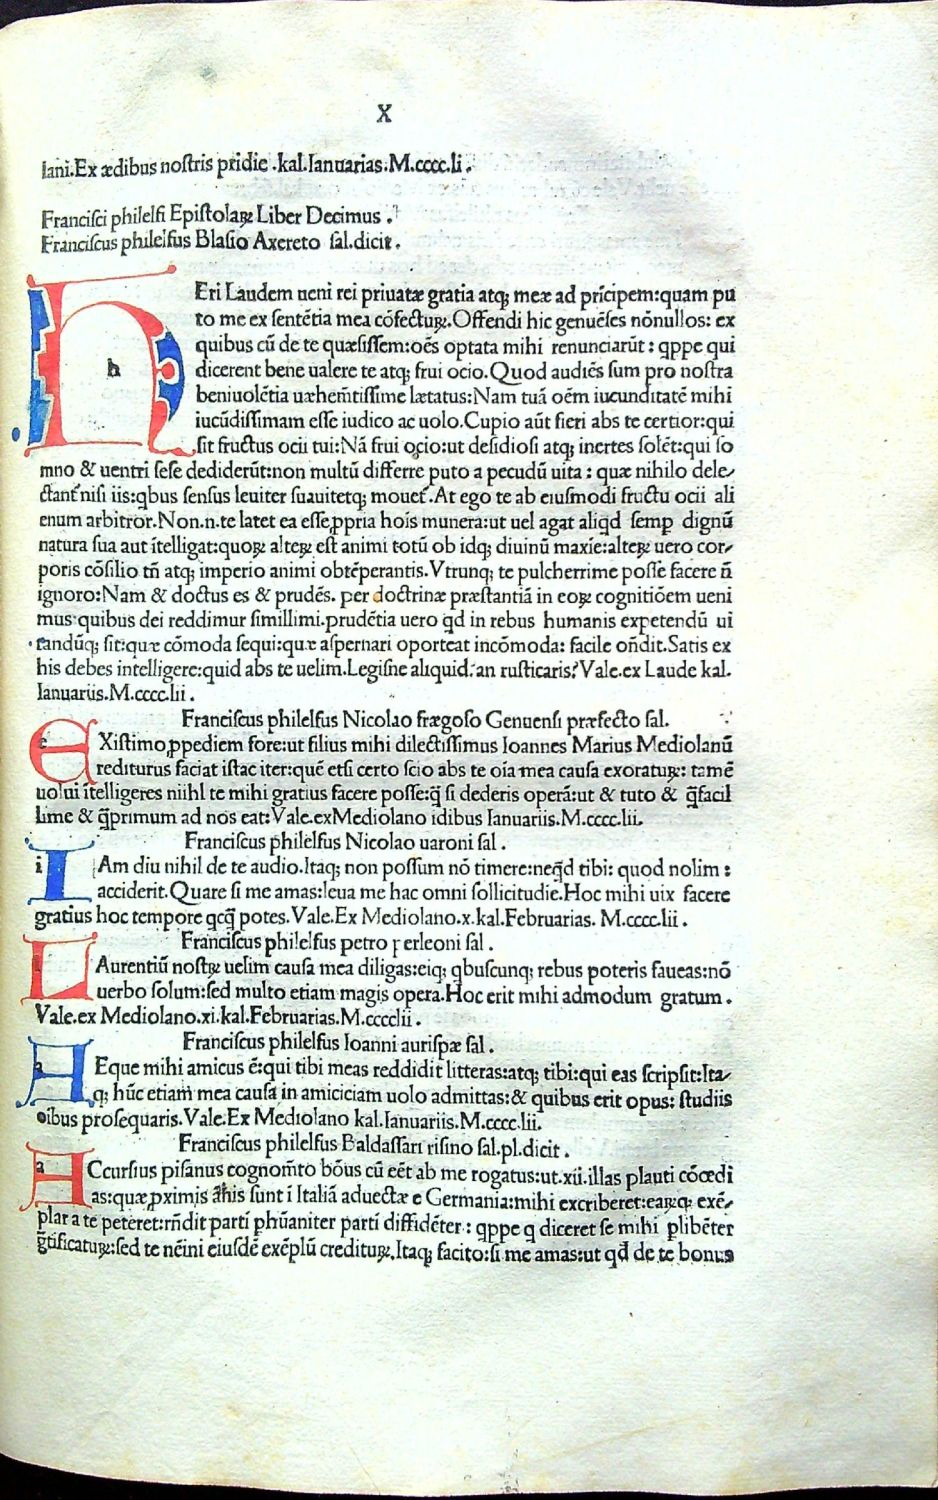 X
lani.Ex ædibus nostris pridie .kal.Ianuarias.M.cccc.li.
Francisci philelfi Epistolaꝝ Liber Decimus.
Franciscus philelfus Blasio Axereto sal.dicit.
HEri Laudem ueni rei priuatæ gratia atq; meæ ad prīcipem:quam pu
to me ex sentētia mea cōfectuꝝ.Offendi hic genuēses nōnullos: ex
quibus cū de te quæsissem:oēs optata mihi renunciarūt: qppe qui
dicerent bene ualere te atq; frui ocio.Quod audiēs sum pro nostra
beniuolētia uæhem̄tissime lætatus:Nam tuā oēm iucunditatē mihi
iucūdissimam esse iudico ac uolo.Cupio aūt fieri abs te certior:qui
sit fructus ocii tui:Nā frui ocio:ut desidiosi atq; inertes solēt:qui so
mno & uentri sese dediderūt:non multū differre puto a pecudū uita: quæ nihilo dele-
ctant nisi iis:qbus sensus leuiter suauitetq; mouet.At ego te ab eiusmodi fructu ocii ali
enum arbitror.Non.n.te latet ea esse ꝓpria hoīs munera:ut uel agat aliqd semp dignū
natura sua aut ītelligat:quoꝝ alteꝝ est animi totū ob idq; diuinū maxīe:alteꝝ uero cor-
poris cōsilio tn̄ atq; imperio animi obtēperantis.Vtrunq; te pulcherrime posse facere n̄
ignoro:Nam & doctus es & prudēs. per doctrinæ præstantiā in eoꝝ cognitiōem ueni
mus quibus dei reddimur simillimi.prudētia uero qd in rebus humanis expetendū ui
tandūq; sit:quæ cōmoda sequi:quæ aspernari oporteat incōmoda: facile on̄dit.Satis ex
his debes intelligere:quid abs te uelim.Legisne aliquid:an rusticaris?Vale.ex Laude kal.
Ianuariis.M.cccc.lii.
Franciscus philelfus Nicolao frægoso Genuensi præfecto sal.
EXistimo ꝓpediem fore:ut filius mihi dilectissimus Ioannes Marius Mediolanū
rediturus faciat istac iter:quē etsi certo scio abs te oīa mea causa exoratuꝝ: tamē
uolui ītelligeres niihl te mihi gratius facere posse:q̄ si dederis operā:ut & tuto & q̄facil
lime & q̄primum ad nos eat:Vale.exMediolano idibus Ianuariis.M.cccc.lii.
Franciscus philelfus Nicolao uaroni sal.
IAm diu nihil de te audio.Itaq; non possum nō timere:neqd tibi: quod nolim:
acciderit.Quare si me amas:leua me hac omni sollicitudie.Hoc mihi uix facere
gratius hoc tempore qcq̄ potes.Vale.Ex Mediolano.x.kal.Februarias. M.cccc.lii.
Franciscus philelfus petro perleoni sal.
LAurentiū nostꝝ uelim causa mea diligas:eiq; qbuscunq; rebus poteris faueas:nō
uerbo solum:sed multo etiam magis opera.Hoc erit mihi admodum gratum.
Vale.ex Mediolano.xi.kal.Februarias.M.cccclii.
Franciscus philelfus Ioanni aurispæ sal.
AEque mihi amicus ē:qui tibi meas reddidit litteras:atq; tibi:qui eas scripsit:Ita-
q; hūc etiam mea causa in amiciciam uolo admittas:& quibus erit opus: studiis
oibus prosequaris.Vale.Ex Mediolano kal.Ianuariis.M.cccc.lii.
Franciscus philelfus Baldassari risino sal.pl.dicit.
ACcursius pisanus cognom̄to bōus cū eēt ab me rogatus:ut.xii.illas plauti cōœdi
as:quæ ꝓximis āhis sunt ī Italiā aduectæ e Germania:mihi excriberet:eaꝝq; exē-
plar a te peteret:rn̄dit parti phūaniter parti diffidēter: qppe q diceret se mihi plibēter
gr̄tificatuꝝ:sed te nēini eiusdē exēplū credituꝝ.Itaq; facito:si me amas:ut qd de te bonus